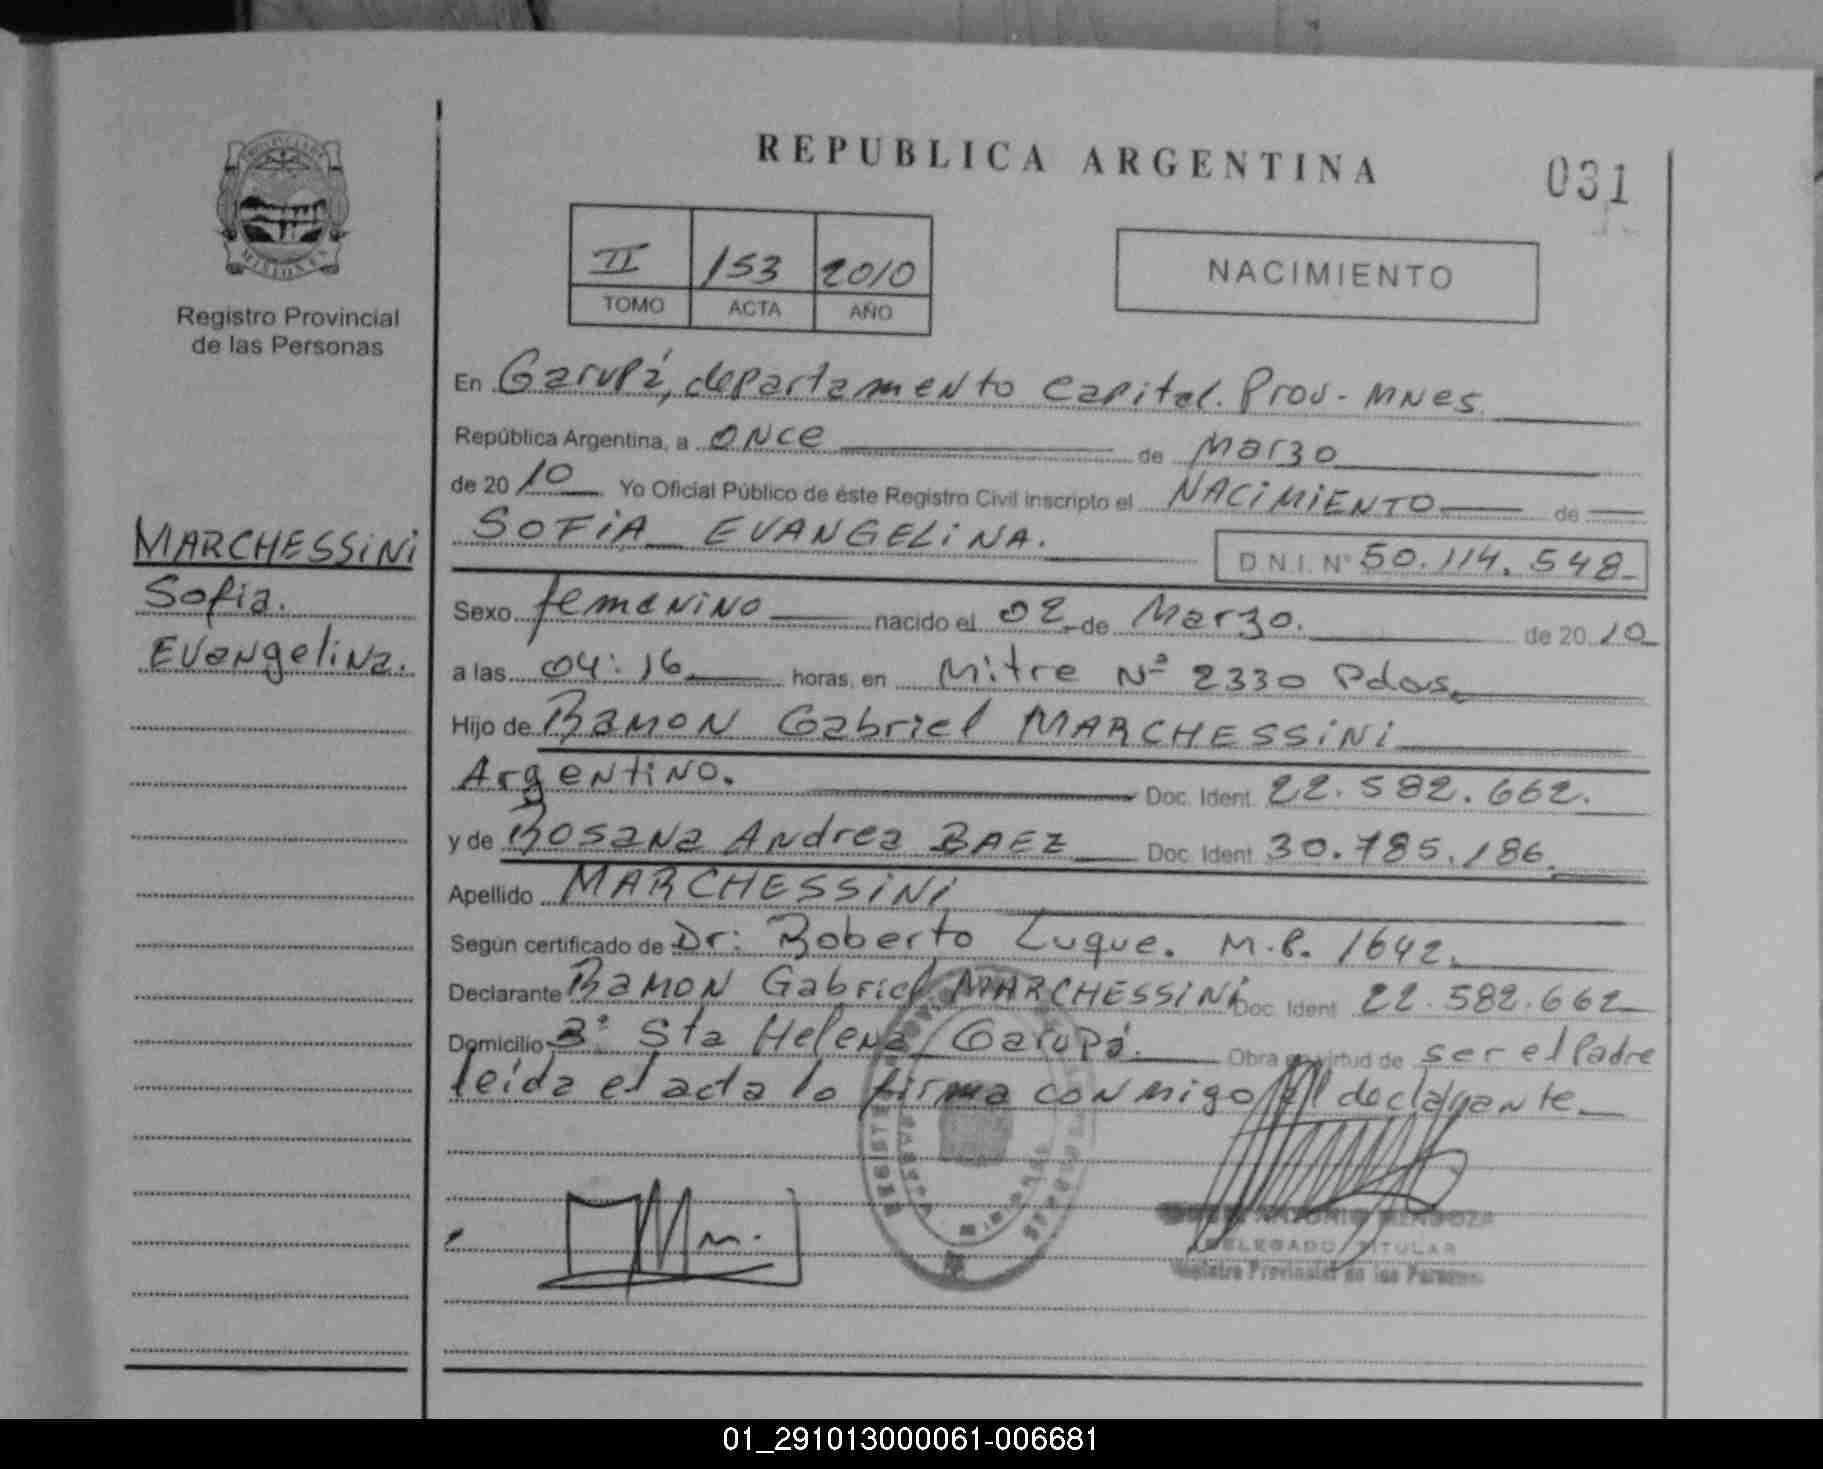 REPUBLICA ARGENTINA
031
PROVINCIA DE
MISIONES
Registro Provincial
de las Personas
II 153 2010
TOMO ACTA AÑO
NACIMIENTO
En Garupá, departamento Capital. Prov. Mnes
República Argentina, a once de Marzo
de 2010 Yo Oficial Público de éste Registro Civil inscripto el NACIMIENTO de
SOFIA EVANGELINA.
D.N.I. Nº 50.114.548
MARCHESSINI
Sofia.
Evangelina.
Sexo femenino nacido el 02 de Marzo. de 2010
a las 04:16 horas, en Mitre Nº 2330 Pdas
Hijo de Ramon Gabriel MARCHESSINI
Argentino. Doc. Ident. 22.582.662.
y de Rosana Andrea BAEZ Doc. Ident. 30.785.186.
Apellido MARCHESSINI
Según certificado de Dr: Roberto Luque. M.P. 1642.
Declarante Ramon Gabriel MARCHESSINI Doc. Ident. 22.582.662
Domicilio Bº Sta Helena Garupá. Obra en virtud de ser el Padre
leída el acta lo firma conmigo el declarante
ANTONIO MENDOZA
DELEGADO TITULAR
Registro Provincial de las Personas
01_291013000061-006681